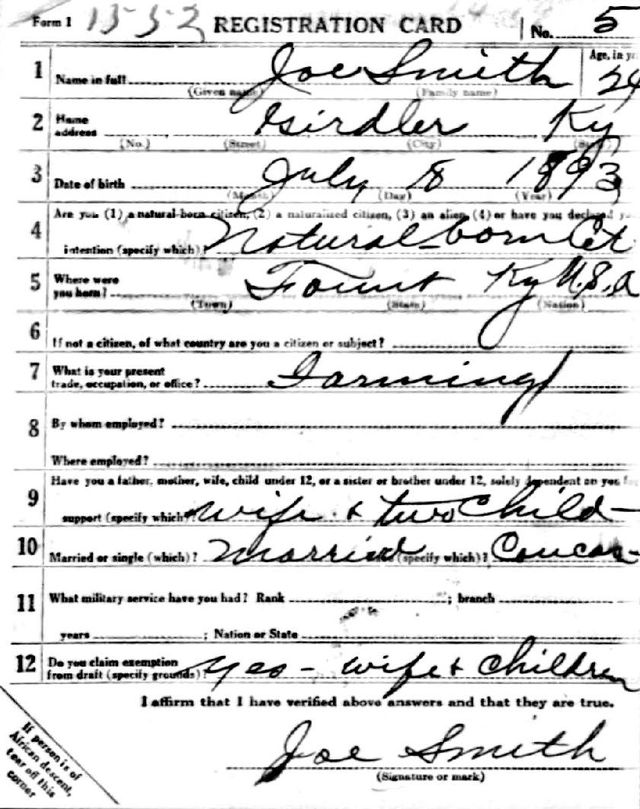 Form 1 13-3-2 REGISTRATION CARD No. 5
1 Name in full Joe Smith Age, in yrs 24
(Given name) (Family name)
2 Home address Girdler Ky
(No.) (Street) (City)
3 Date of birth July 8 1893
(Month) (Day) (Year)
4 Are you (1) a natural-born citizen, (2) a naturalized citizen, (3) an alien, (4) or have you declared
intention (specify which)? Natural-born Cit
5 Where were you born? Fount Ky U.S.A
(Town) (State) (Nation)
6 If not a citizen, of what country are you a citizen or subject?
7 What is your present trade, occupation, or office? Farming
8 By whom employed?
Where employed?
9 Have you a father, mother, wife, child under 12, or a sister or brother under 12, solely dependent on you for
support (specify which)? wife & two Child-
10 Married or single (which)? Married (specify which)? Caucas-
11 What military service have you had? Rank ; branch
years ; Nation or State
12 Do you claim exemption from draft (specify grounds)? Yes - wife & Children
I affirm that I have verified above answers and that they are true.
Joe Smith
(Signature or mark)
If person is of
African descent,
tear off this
corner